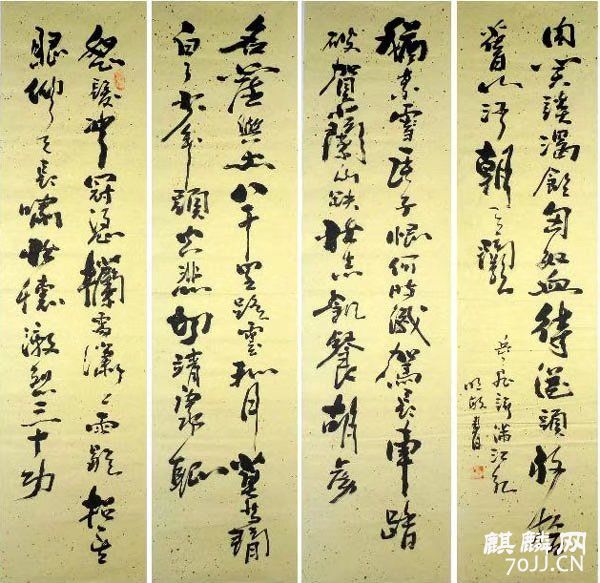 怒髮冲冠憑欄處瀟瀟雨歇抬望
眼仰天長嘯壯懷激烈三十功
名塵與土八千里路雲和月莫等閒
白了少年頭空悲切靖康恥
猶未雪臣子恨何時滅駕長車踏
破賀蘭山缺壯志飢餐胡虜
肉笑談渴飲匈奴血待從頭收拾
舊山河朝天闕
岳飛詞滿江紅
書
麒麟网
70JJ.CN